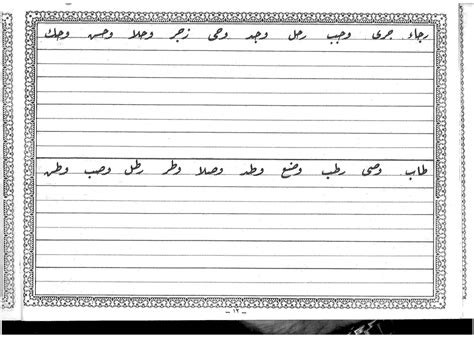 رجاء جرى وجب رحل وجد وحى زجر وحلا وحسن وحك
طاب وصى رطب وضع وطد وصلا وطر رطل وصب وطن
١٢